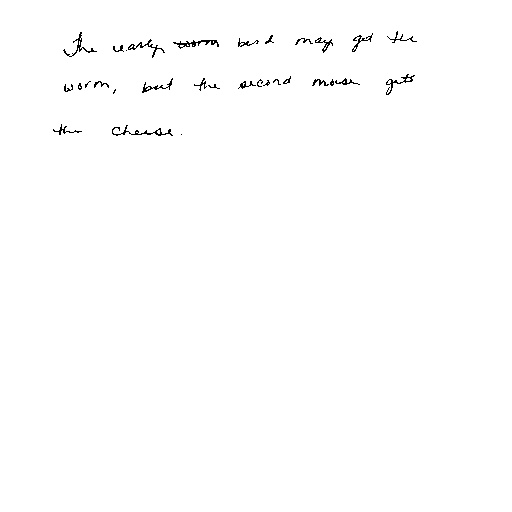 The early worm bird may get the
worm, but the second mouse gets
the cheese.